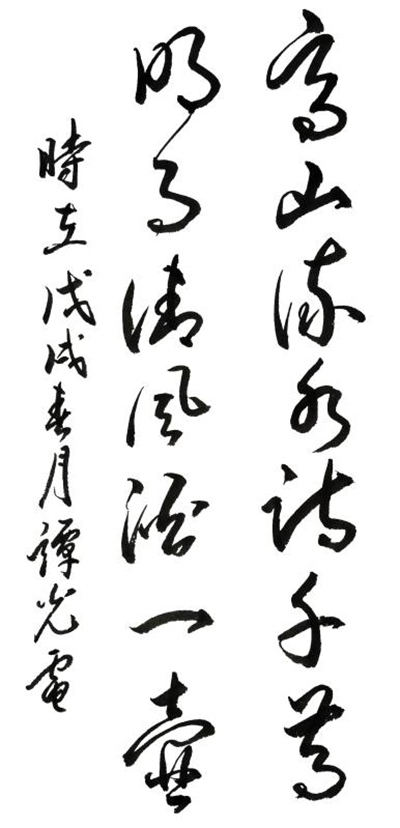 高山流水詩千首
明月清風酒一壺
時在戊戌春月譚光電